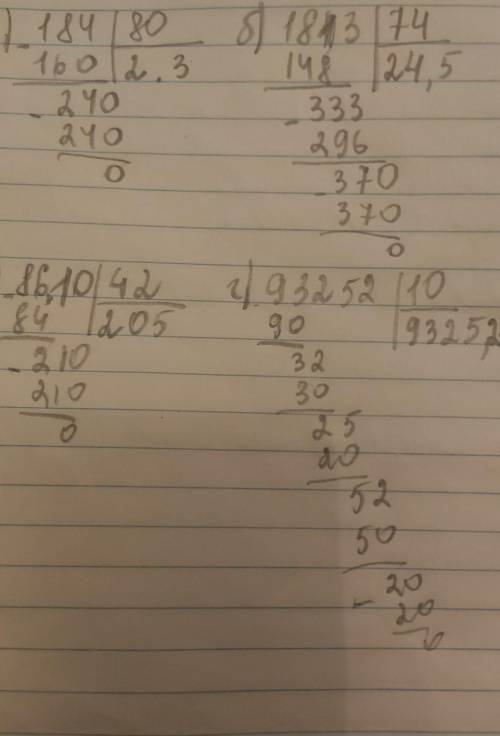 ) -184 | 80
160 | 2.3
-240
240
0
б) 1813 | 74
148 | 24,5
-333
296
-370
370
0
) -86,10 | 42
84 | 205
-210
210
0
г) 93252 | 10
90 | 9325,2
32
30
25
20
52
50
-20
20
0